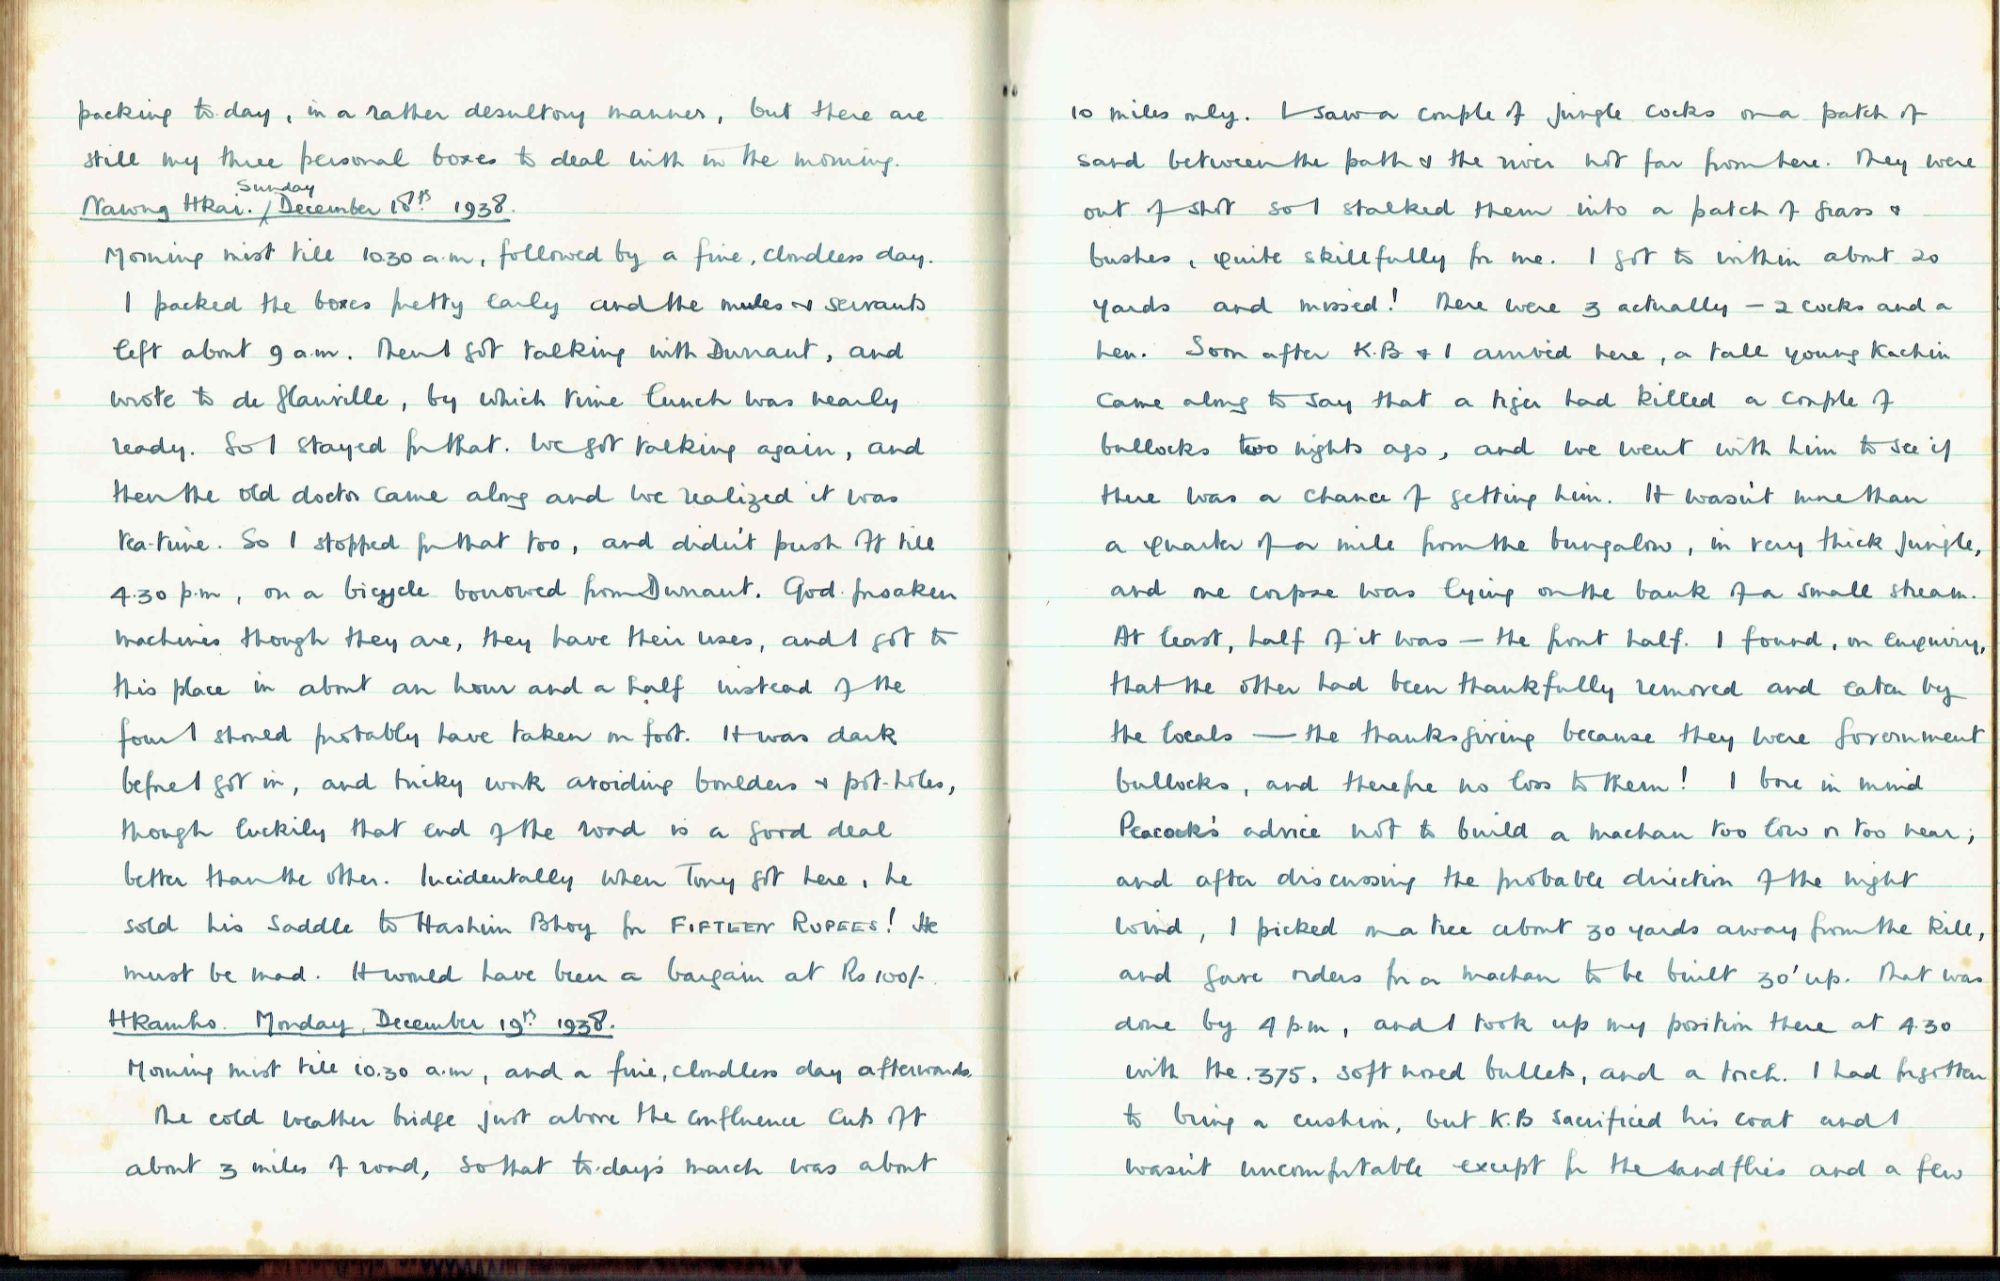 packing to-day, in a rather desultory manner, but there are
still my three personal boxes to deal with in the morning.
Nawng Hkai. Sunday, December 18th 1938.
Morning mist till 10.30 a.m, followed by a fine, cloudless day.
I packed the boxes pretty early and the mules & servants
left about 9 a.m. Then I got talking with Durrant, and
wrote to de Glanville, by which time lunch was nearly
ready. So I stayed for that. We got talking again, and
then the old doctor came along and we realized it was
tea-time. So I stopped for that too, and didn't push off till
4.30 p.m, on a bicycle borrowed from Durrant. God-forsaken
machines though they are, they have their uses, and I got to
this place in about an hour and a half instead of the
four I should probably have taken on foot. It was dark
before I got in, and tricky work avoiding boulders & pot-holes,
though luckily that end of the road is a good deal
better than the other. Incidentally when Tony got here, he
sold his saddle to Hashim Bhoy for FIFTEEN RUPEES! He
must be mad. It would have been a bargain at Rs 100/-.
Hkamho. Monday, December 19th 1938.
Morning mist till 10.30 a.m, and a fine, cloudless day afterwards.
The cold weather bridge just above the confluence cuts off
about 3 miles of road, so that to-day's march was about
10 miles only. I saw a couple of jungle cocks on a patch of
sand between the path & the river not far from here. They were
out of shot so I stalked them into a patch of grass &
bushes, quite skillfully for me. I got to within about 20
yards and missed! There were 3 actually – 2 cocks and a
hen. Soon after K.B & I arrived here, a tall young Kachin
came along to say that a tiger had killed a couple of
bullocks two nights ago, and we went with him to see if
there was a chance of getting him. It wasn't more than
a quarter of a mile from the bungalow, in very thick jungle,
and one corpse was lying on the bank of a small stream.
At least, half of it was – the front half. I found, on enquiry,
that the other had been thankfully removed and eaten by
the locals – the thanksgiving because they were Government
bullocks, and therefore no loss to them! I bore in mind
Peacock's advice not to build a machan too low or too near;
and after discussing the probable direction of the night
wind, I picked on a tree about 30 yards away from the kill,
and gave orders for a machan to be built 30' up. That was
done by 4 p.m, and I took up my position there at 4.30
with the .375, soft nosed bullets, and a torch. I had forgotten
to bring a cushion, but K.B sacrificed his coat and I
wasn't uncomfortable except for the sandflies and a few